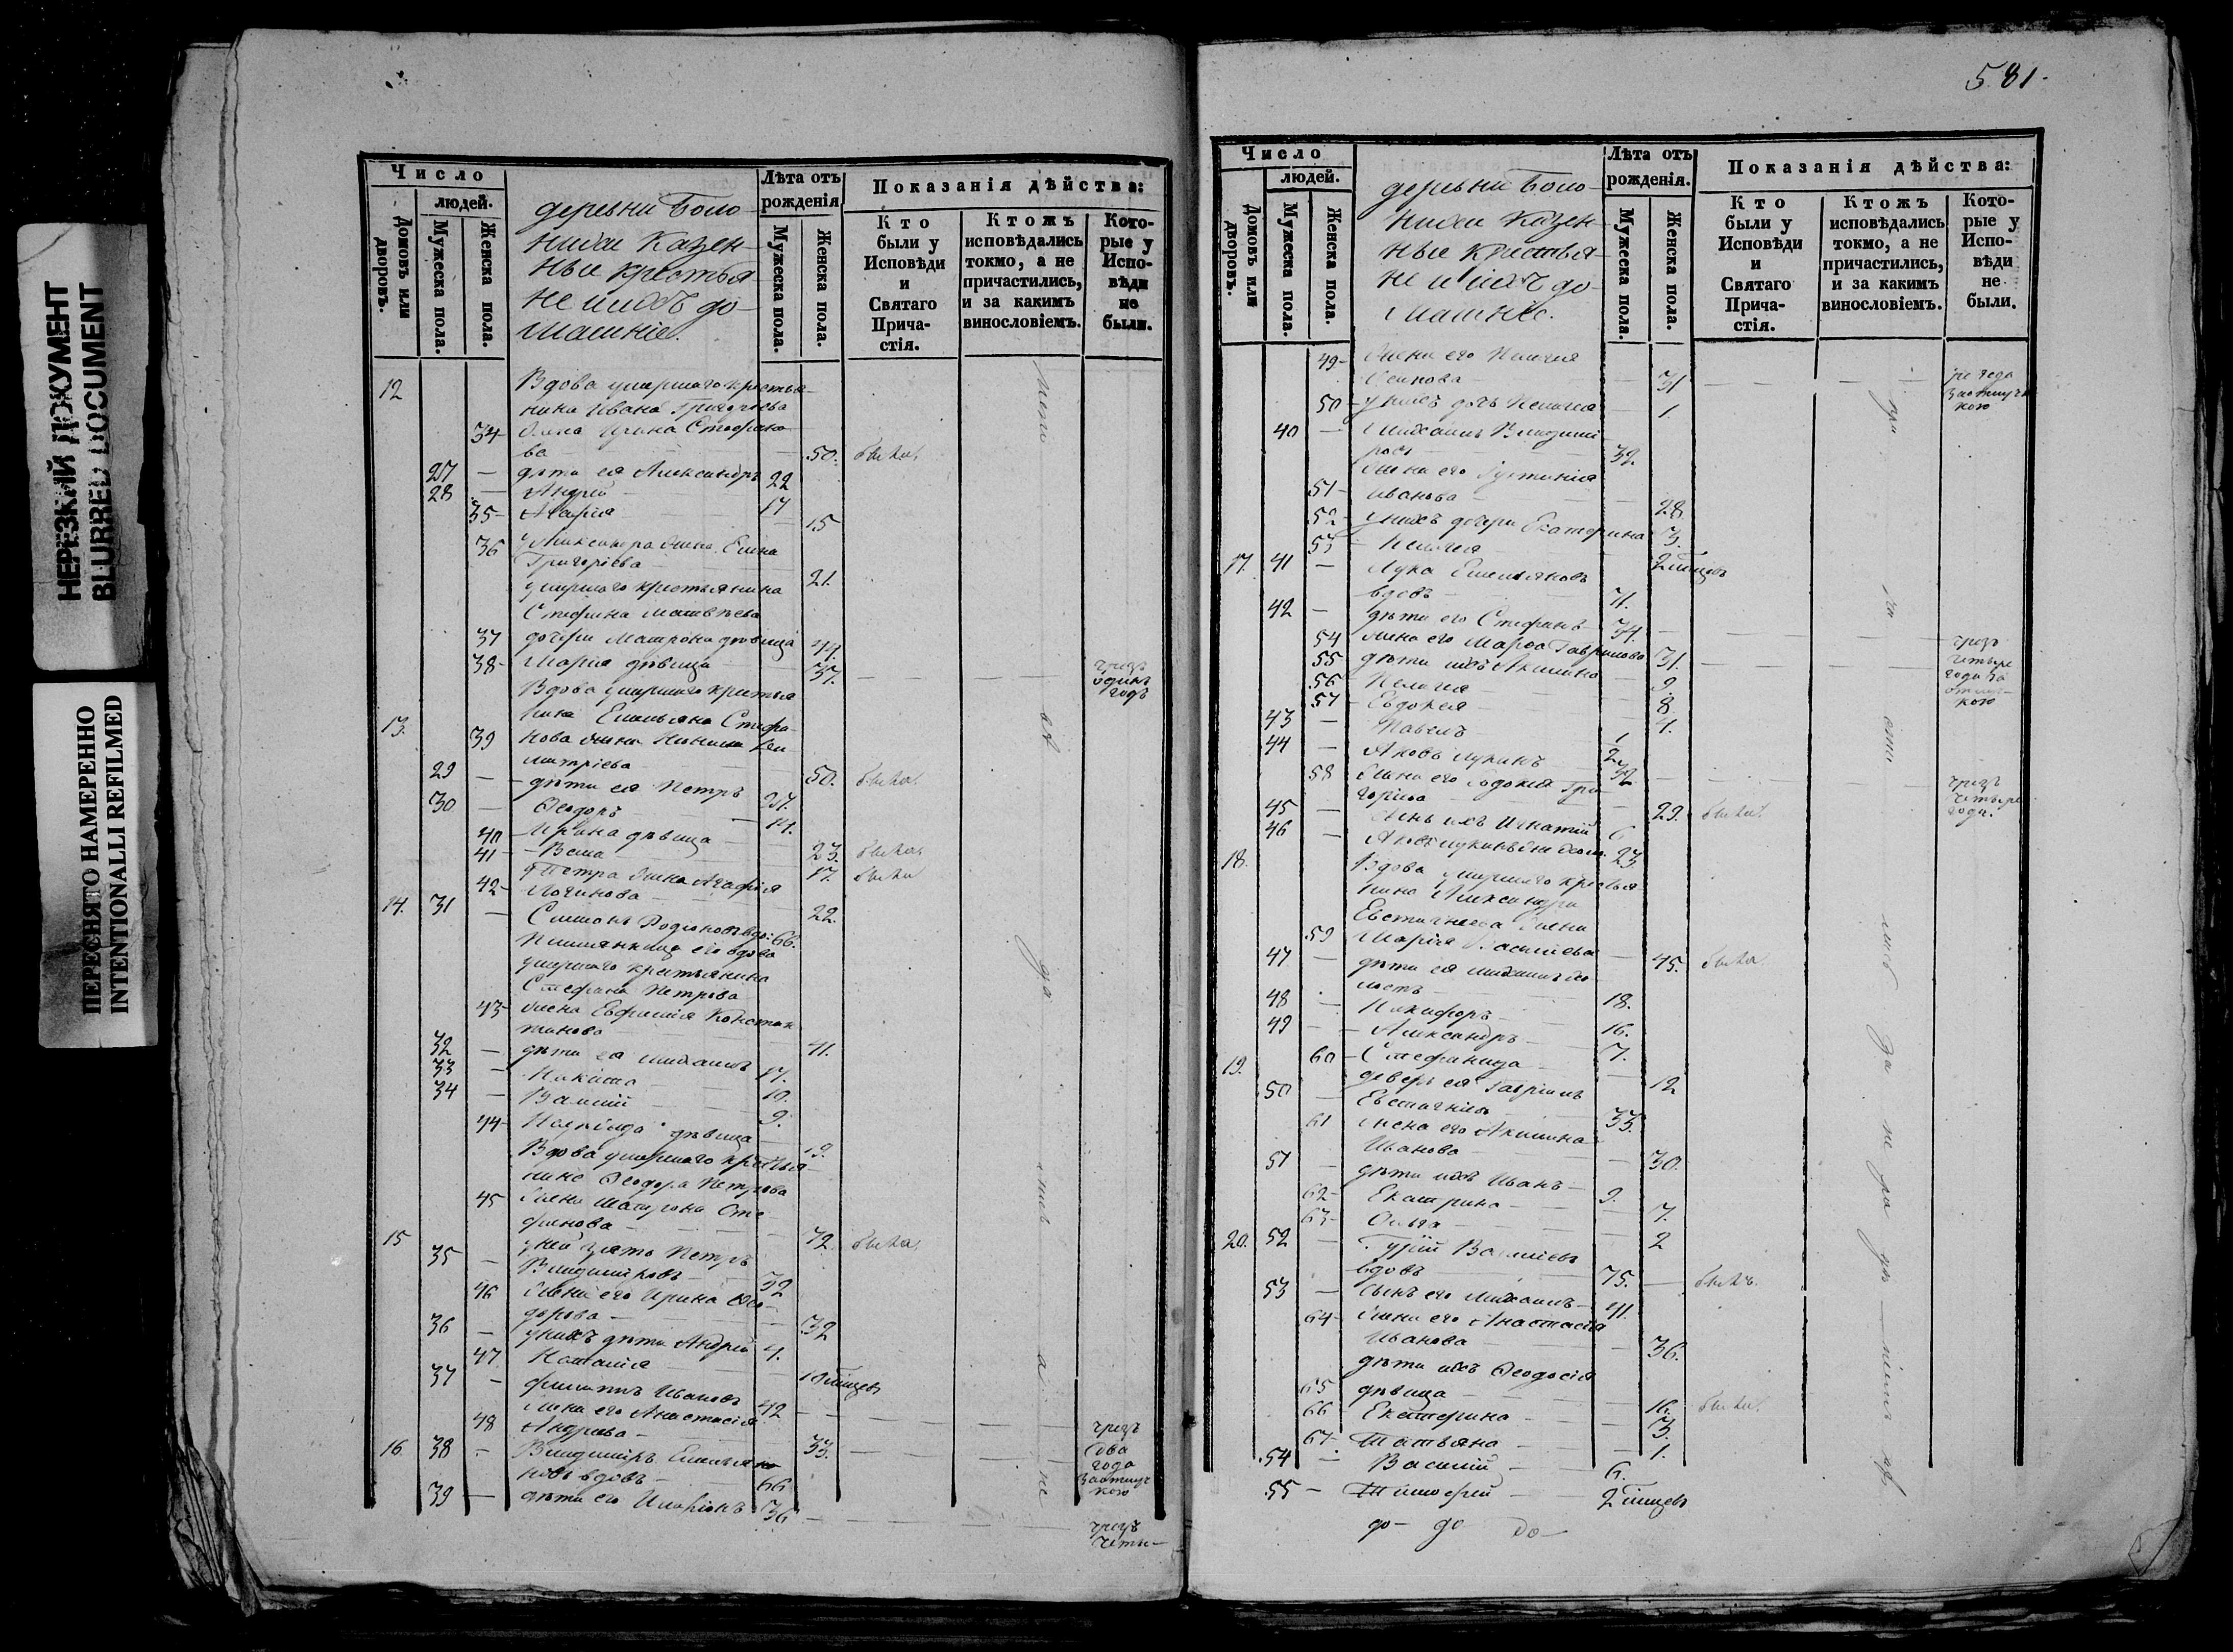 НЕРЕЗКИЙ ДОКУМЕНТ
BLURRED DOCUMENT
ПЕРЕСНЯТО НАМЕРЕННО
INTENTIONALLI REFILMED
Число
людей.
Домовъ или дворовъ.
Мужеска пола.
Женска пола.
деревни Боло-
нидаи Казен-
ные крестья-
не и ихъ до-
машніе.
Лѣта отъ рожденія
Мужеска пола.
Женска пола.
Показанія дѣйства:
Кто были у Исповѣди и Святаго Причастія.
Ктожъ исповѣдались токмо, а не причастились, и за какимъ винословіемъ.
Которые у Исповѣди не были.
12 Вдова умершаго крестья-
нина Ивана Григорьева
34 жена Ирина Стефано-
ва 50. была
27 дѣти ея Александръ 22
28 Андрей 17
35 Агафія 15
36 Александра жена Елена
Григоріева 21.
умершаго крестьянина
Стефана Матвѣева
37 дочери Матрона дѣвица 44
38 Марія дѣвица 37. чрезъ одинъ годъ
Вдова умершаго крестья
13. нина Емельяна Стефа-
39 нова жена
митріева 50. была
29 дѣти ея Петръ 24.
30 Ѳеодоръ 14.
40 Ирина дѣвица 23. была
41 Васса 17. была
42 Петра жена Агафія
Логинова 22.
14. 31 Симонъ Родіоновъ вдо: 66.
Племянница его вдова
умершаго крестьянина
Стефана Петрова
43 жена Евфимія Констан
тинова 41.
32 дѣти ея Михаилъ 17.
33 Никита 10.
34 Василій 9.
44 дѣвица 19.
Вдова умершаго крестья-
нина Ѳеодора Петрова
45 жена Матрона Сте
фанова 72. была
15 35 у ней зять Петръ
Владиміровъ 32
46 жена его Ирина Ѳео-
дорова 32
36 у нихъ дѣти Андрей 4.
47 Наталія 10 мѣсяцевъ
37 Филиппъ Ивановъ 42
48 жена его Анастасія
Андреева 33. чрезъ два года за отлучкою
16 38 Владиміръ Емельяно
новъ вдовъ 66
39 дѣти его Иларіонъ 36 чрезъ четы-
581.
Число
людей.
Домовъ или дворовъ.
Мужеска пола.
Женска пола.
деревни Боло-
нидаи Казен-
ные крестья-
не и ихъ до-
машніе.
Лѣта отъ рожденія.
Мужеска пола.
Женска пола.
Показанія дѣйства:
Кто были у Исповѣди и Святаго Причастія.
Ктожъ исповѣдались токмо, а не причастились, и за какимъ винословіемъ.
Которые у Исповѣди не были.
49 жена его Пелагея
Осипова 31 ре года за отлучкою
50 у нихъ дочь Пелагея 1
40 Михаилъ Владимі
ровъ 32.
жена его Іустинія
51 Иванова 28
52 у нихъ дочери Екатерина 3.
53 Пелагея 2 мѣсяцевъ
17. 41 Лука Емельяновъ
вдовъ 71.
42 дѣти его Стефанъ 34.
54 жена его Марѳа Гаврилова 31. чрезъ четыре года за отлучкою
55 дѣти ихъ Акилина 9.
56 Пелагея 8
57 Евдокея 4.
43 Павелъ 1
44 Яковъ Лукинъ 32
58 жена его Евдокія Гри
горьева 29. была чрезъ четыре года.
45 сынъ ихъ Игнатій 6
46 23
18. Вдова умершаго крестья
нина Александра
Евстигнеева жена
59 Марія Васильева 45. была
47 дѣти ея Михаилъ хо
лостъ 18.
48 Никифоръ 16.
49 Александръ 7.
60 Стефанида 12
19. 50 деверь ея Гавріилъ
Евстигніевъ 33.
61 жена его Акилина
Иванова 30.
51 дѣти ихъ Иванъ 9.
62 Екатерина 7.
63 Ольга 2
20. 52 Гурій Василіевъ
вдовъ 75. былъ.
53 сынъ его Михаилъ 41.
64 жена его Анастасія
Иванова 36.
дѣти ихъ Ѳеодосія
65 дѣвица 16. была
66 Екатерина 3.
67. Татьяна 1.
54 Василій 6.
55 Тимоѳей 2 мѣсяцевъ
до- до до-